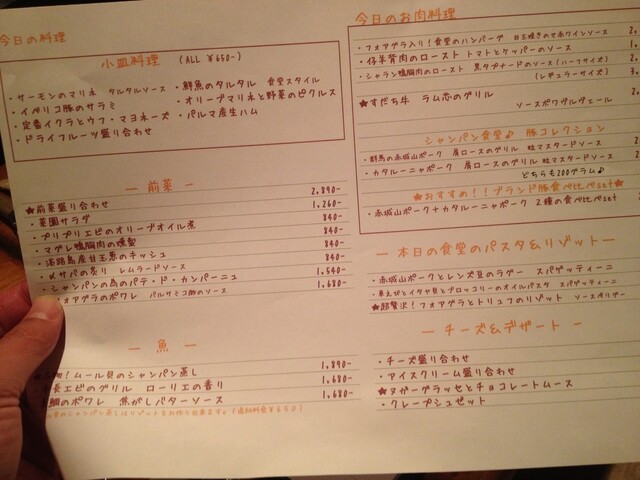 今日の料理
小皿料理 (ALL ¥650-)
・サーモンのマリネ タルタルソース
・イベリコ豚のサラミ
・定番イクラとウフ・マヨネーズ
・ドライフルーツ盛り合わせ
・鮮魚のタルタル 食堂スタイル
・オリーブマリネと野菜のピクルス
・パルマ産生ハム
― 前菜 ―
★前菜盛り合わせ 2,890-
・菜園サラダ 1,260-
・プリプリエビのオリーブオイル煮 840-
・マグレ鴨胸肉の燻製 840-
・淡路島産甘玉葱のキッシュ 840-
・〆サバの炙り レムラードソース 840-
・シャンパンの為のパテ・ド・カンパーニュ 1,540-
フォアグラのポワレ バルサミコ酢のソース 1,680-
― 魚 ―
！ムール貝のシャンパン蒸し 1,890-
長エビのグリル ローリエの香り 1,680-
鯛のポワレ 焦がしバターソース 1,680-
今日のお肉料理
・フォアグラ入り！食堂のハンバーグ 目玉焼きのせ赤ワインソース 2,
・仔羊背肉のロースト トマトとケッパーのソース 1,
・シャラン鴨胸肉のロースト 黒タプナードのソース(ハーフサイズ) 2,
(レギュラーサイズ)
★すだち牛 ラム芯のグリル
ソースボワヴルヴェール
シャンパン食堂♪ 豚コレクション
・群馬の赤城山ポーク 肩ロースのグリル 粒マスタードソース
・カタルーニャポーク 肩ロースのグリル 粒マスタードソース
どちらも200グラム♪
★おすすめ！！ブランド豚食べ比べset★
・赤城山ポーク+カタルーニャポーク 2種の食べ比べset
― 本日の食堂のパスタ&リゾット ―
・赤城山ポークとレンズ豆のラグー スパゲッティーニ
・車えびとイタヤ貝とブロッコリーのオイルパスタ スパゲッティーニ
★超贅沢！フォアグラとトリュフのリゾット
― チーズ&デザート ―
・チーズ盛り合わせ
・アイスクリーム盛り合わせ
★ヌガーグラッセとチョコレートムース
・クレープシュゼット